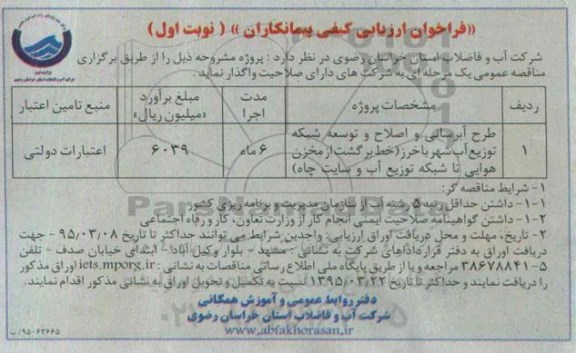 «فراخوان ارزیابی کیفی پیمانکاران» ( نوبت اول )
شرکت آب و فاضلاب استان خراسان رضوی در نظر دارد : پروژه مشروحه ذیل را از طریق برگزاری
مناقصه عمومی یک مرحله ای به شرکت های دارای صلاحیت واگذار نماید.
ردیف مشخصات پروژه مدت اجرا مبلغ برآورد «میلیون ریال» منبع تامین اعتبار
۱ طرح آبرسانی و اصلاح و توسعه شبکه توزیع آب شهر باخرز (خط برگشت از مخزن هوایی تا شبکه توزیع آب و سایت چاه) ۶ ماه ۶۰۳۹ اعتبارات دولتی
۱- شرایط مناقصه گر:
۱-۱- داشتن حداقل رتبه ۵ رشته آب از سازمان مدیریت و برنامه ریزی کشور
۱-۲- داشتن گواهینامه صلاحیت ایمنی انجام کار از وزارت تعاون، کار و رفاه اجتماعی
۲- تاریخ، مهلت و محل دریافت اوراق ارزیابی: واجدین شرایط می توانند حداکثر تا تاریخ ۹۵/۰۳/۰۸ - جهت
دریافت اوراق به دفتر قراردادهای شرکت به نشانی : مشهد - بلوار وکیل آباد - ابتدای خیابان صدف - تلفن
۵-۳۸۶۷۸۸۴۱ مراجعه و یا از طریق پایگاه ملی اطلاع رسانی مناقصات به نشانی : iets.mporg.ir اوراق مذکور
را دریافت نمایند و حداکثر تا تاریخ ۱۳۹۵/۰۳/۲۲ نسبت به تکمیل و تحویل اوراق به نشانی مذکور اقدام نمایند.
دفتر روابط عمومی و آموزش همگانی
شرکت آب و فاضلاب استان خراسان رضوی
www.abfakhorasan.ir
۹۵۰۶۲۶۶۵/ب